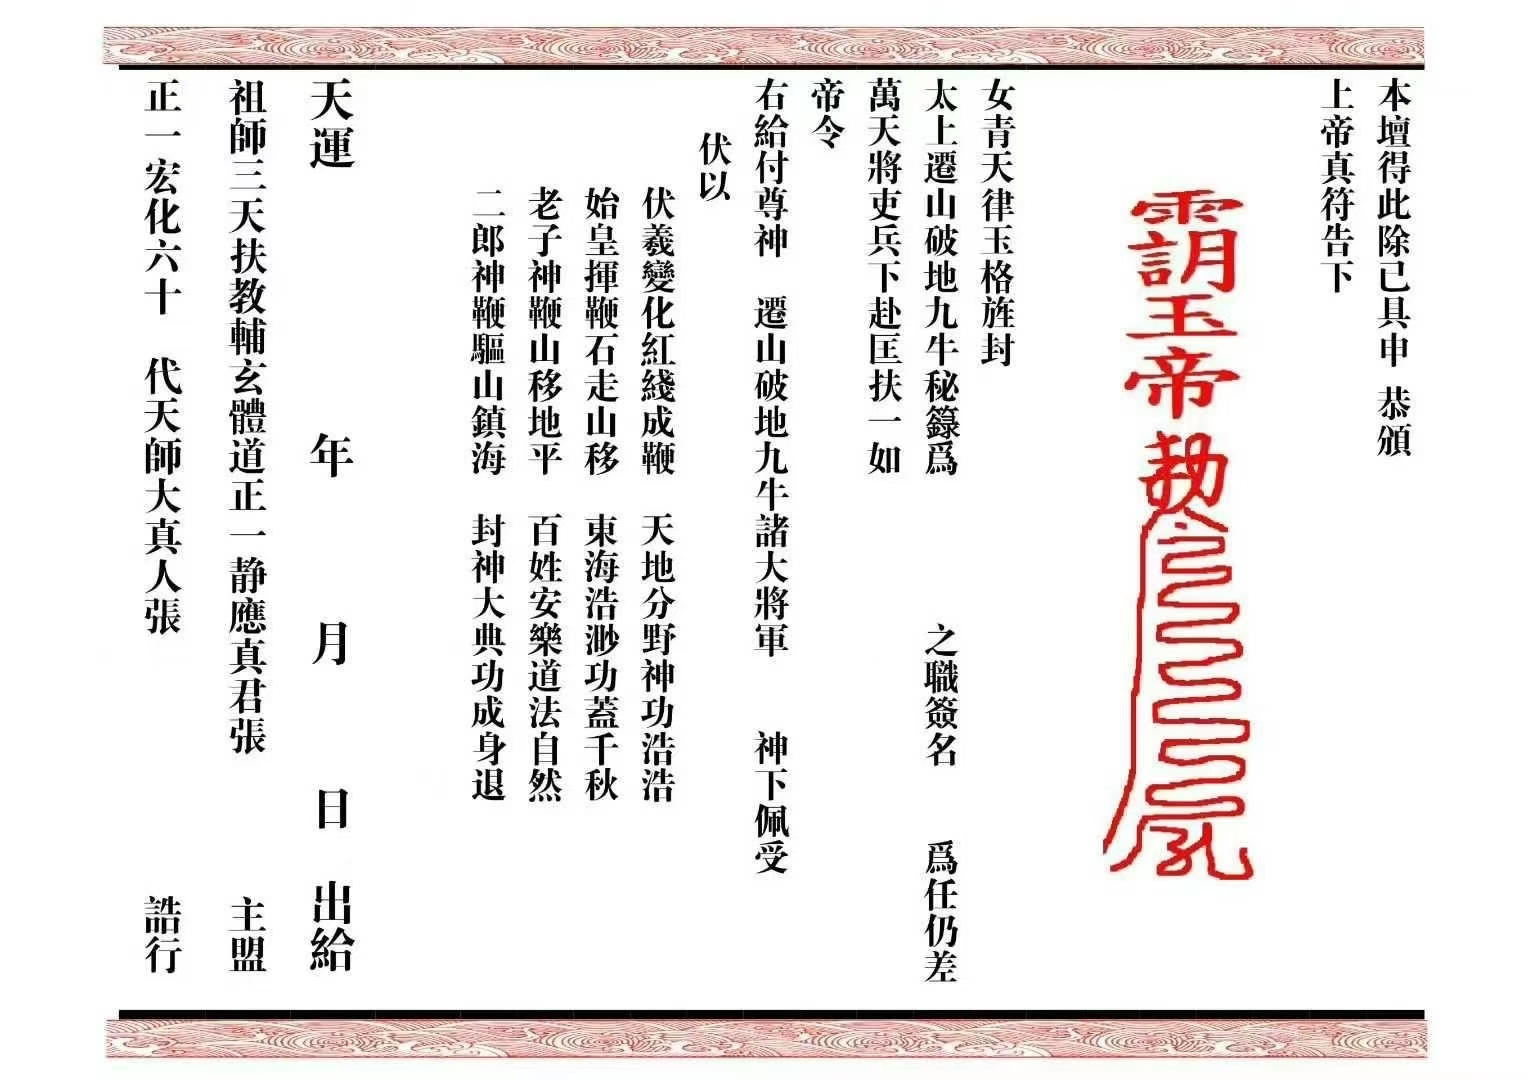 本壇得此除已具申 恭頒
上帝真符告下
玉帝
女青天律玉格旌封
太上遷山破地九牛秘籙爲 之職簽名 爲任仍差
萬天將吏兵下赴匡扶一如
帝令
右給付尊神 遷山破地九牛諸大將軍 神下佩受
伏以
伏羲變化紅綫成鞭 天地分野神功浩浩
始皇揮鞭石走山移 東海浩渺功蓋千秋
老子神鞭山移地平 百姓安樂道法自然
二郎神鞭驅山鎮海 封神大典功成身退
天運 年 月 日 出給
祖師三天扶教輔玄體道正一静應真君張 主盟
正一宏化六十 代天師大真人張 誥行